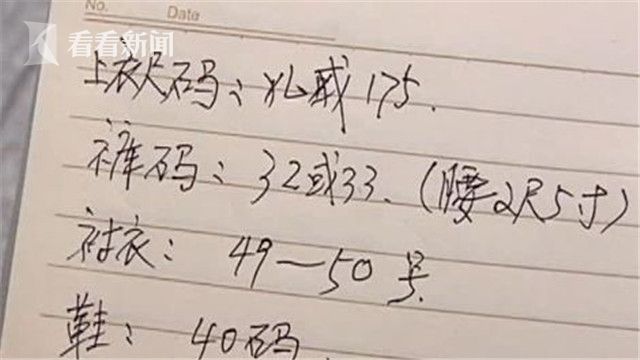 No.
Date
看看新闻
上衣尺码：XL或175.
裤码：32或33.（腰2尺5寸）
衬衣：49—50号.
鞋：40码.